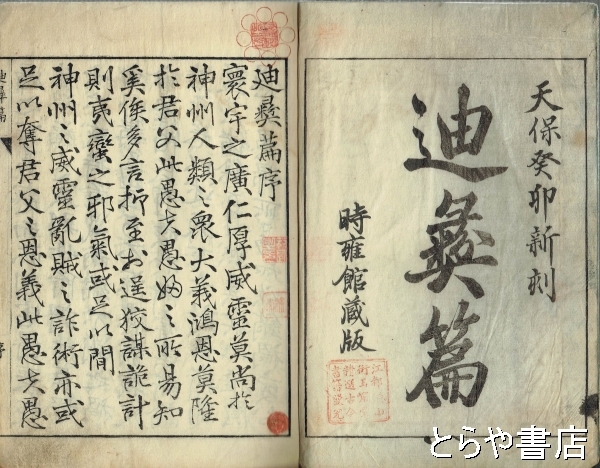 天保癸卯新刻
迪彝篇
時雍館蔵版
迪彝篇序
寰宇之廣仁厚威靈莫尚於
神州人類之衆大義鴻恩莫隆
於君父此愚夫愚婦之所易知
奚俟多言抑至於逞狡謀詭計
則夷蠻之邪氣或足以間
神州之威靈亂賊之詐術亦或
足以奪君父之恩義此愚夫愚
迪彝篇
序
とらや書店